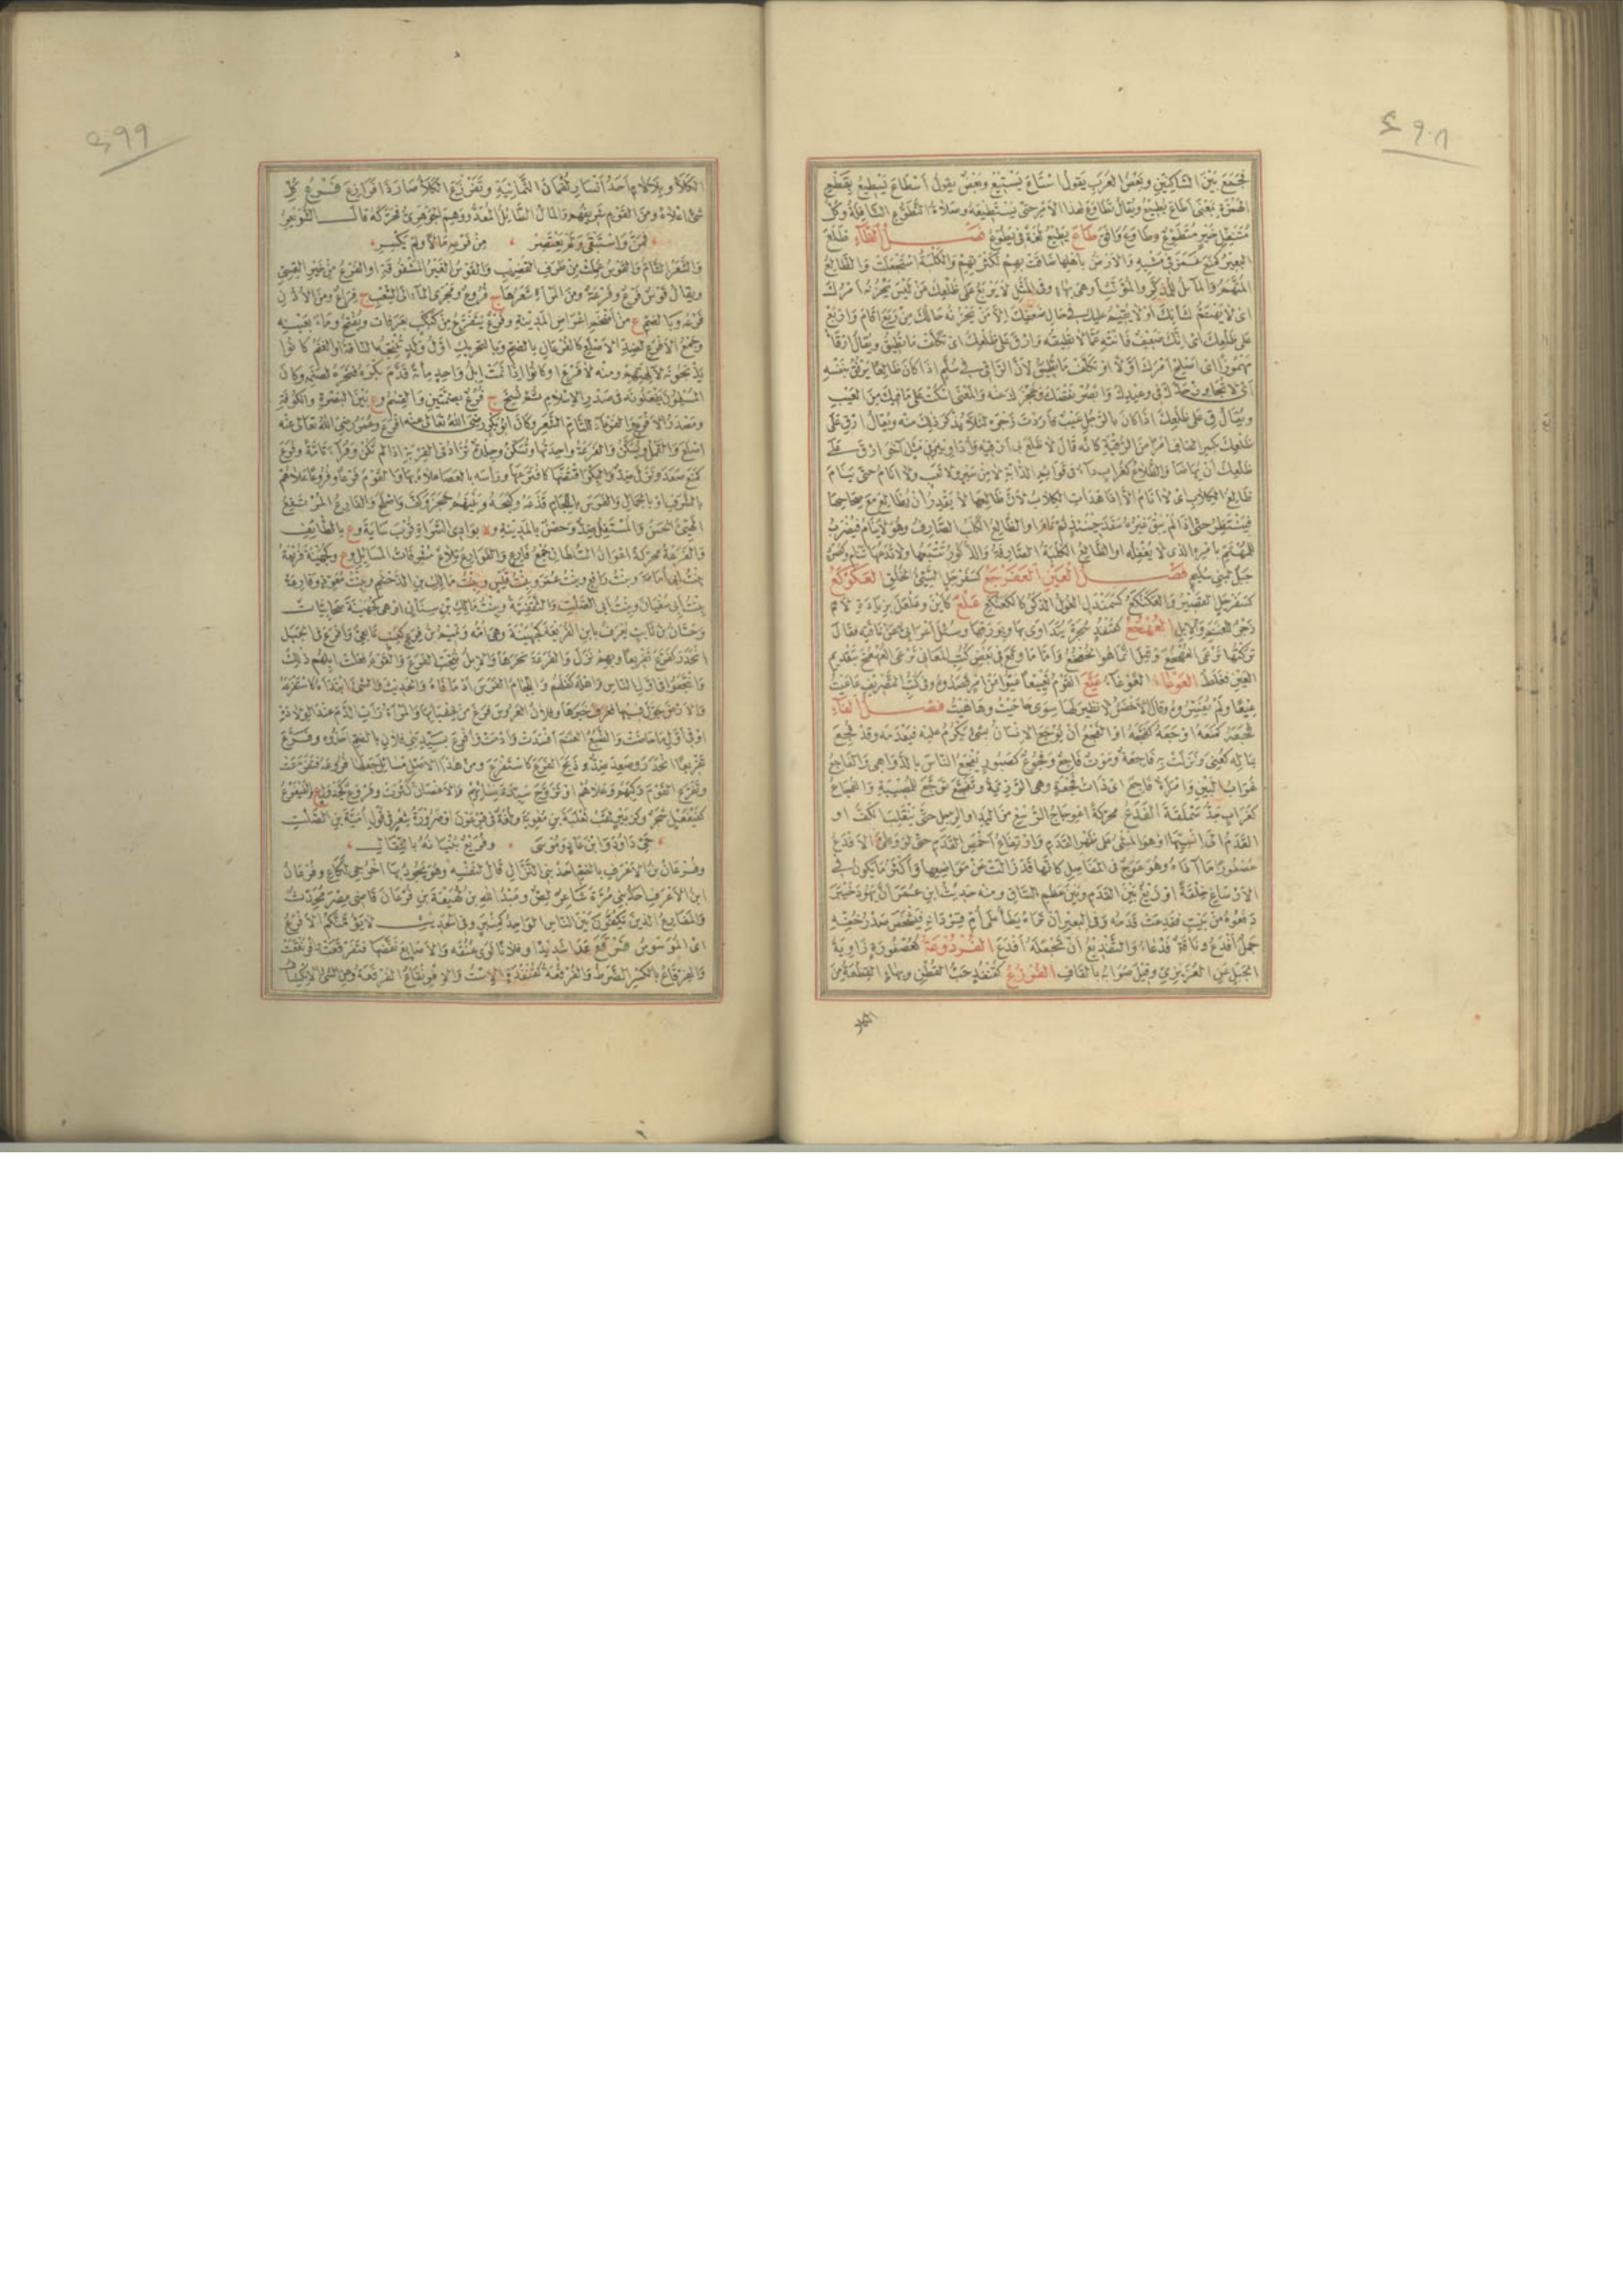 ٤٩٨
فجمع بين الساكنين وبعض العرب يقول استاع يستيع وبعض يقول اسطاع يسطيع بقطع
الهمزة بمعنى اطاع يطيع ويقال تطاوع لهذا الامر حتى يستطيعه وصلاة التطوع النافلة وكل
متنفل خير متطوع وطاوع وافق طاع يطيع لغة فى يطوع فصل الظاء ظلع
البعير كمنع غمز فى مشيه والارض باهلها ضاقت بهم لكثرتهم والكلبة استحملت والظالع
المتهم والمائل للمذكر والمؤنث او هى بهاء وفى المثل لا يربع على ظلعك من ليس يحزنه امرك
اى لا يهتم لشأنك او لا يقيم عليك فى حال ضعفك الا من يحزنه حالك من ربع اقام واربع
على ظلعك اى انك ضعيف فانته عما لا تطيقه وارق على ظلعك اى تكلف ما تطيق ويقال ارقأ
مهموزا اى اصلح امرك اولا او تكلف ما تطيق لان الراقى فى سلم اذا كان ظالعا يرفق بنفسه
اى لا تجاوز حدك فى وعيدك وابصر نقصك وعجزك عنه والمعنى اسكت على ما فيك من العيب
ويقال ق على ظلعك اذا كان بالرجل عيب فاردت زجره لئلا يذكر ذلك منه ويقال ارق على
ظلعك بكسر القاف امر من الرقية كانه قال لا ظلع بى ارقيه واداويه وفى مثل آخر ارق على
ظلعك ان يهاضا والظلاع كغراب داء فى قوائم الدابة لا من سير ولا تعب ولا انام حتى ينام
ظالع الكلاب اى لا انام الا اذا هدأت الكلاب لان ظالعها لا يقدر ان يعاظل مع صحاحها
فينتظر حتى اذا لم يبق غيره سفد حينئذ ثم نام او الظالع الكلب الصارف وهو لا ينام فيضرب
للمهتم بامره الذى لا يغفله او الظالع الكلبة الصارفة والذكور تتبعها ولا تدعها تنام وكصرد
جبل لبنى سليم فصل العين العفرجع كسفرجل السيئ الخلق العكوكع
كسفرجل القصير والعكنكع كسمندل الغول الذكر كالكعنكع علع كاين وعلعل بزيادة لام
زجر للغنم والابل العهخع كقنفذ شجرة يتداوى بها وبورقها وسئل اعرابى عن ناقته فقال
تركتها ترعى العهخع وقيل انما هو الخعخع واما ما وقع فى بعض كتب المعانى ترعى الهعخع بتقديم
العين فغلط العوعاء الغوغاء عيع القوم تعييعا عيوا عن امر قصدوه وفى كتب التصريف عاعيت
عيعا ولم يفسروه وقال الاخفش لا نظير لها سوى حاحيت وهاهيت فصل الفاء
فجعه كمنعه اوجعه كفجعه او الفجع ان يوجع الانسان بشئ يكرم عليه فيعدمه وقد فجع
بماله كعنى ونزلت به فاجعة وموت فاجع وفجوع كصبور يفجع الناس بالدواهى والفاجع
غراب البين وامرأة فاجع اى ذات فجعة وهى الرزية وتفجع توجع للمصيبة والفجاع
كغراب جد شملقة الفدع محركة اعوجاج الرسغ من اليد او الرجل حتى ينقلب الكف او
القدم الى انسيها او هو المشى على ظهر القدم وارتفاع اخمص القدم حتى لو وطئ الافدع
عصفورا ما آذاه او هو عوج فى المفاصل كانها قد زالت عن مواضعها واكثر ما يكون فى
الارساغ خلقة او زيغ بين القدم وبين عظم الساق ومنه حديث ابن عمر ان يهود خيبر
دفعوه من بيت ففدعت قدمه وفى البعير ان تراه يطأ على ام قردانه فيشخص صدر خفه
جمل افدع وناقة فدعاء والتفديع ان تجعله افدع الفردوعة كعصفورة زاوية
الجبل عن العزيزى وقيل صوابه بالقاف الفرزع كقنفذ حب القطن وبهاء القطعة من
الكلأ
٤٩٩
الكلأ وبلا لام احد انسار لقمان الثمانية وتفرزع الكلأ صار ذا فرازيع فرع كل
شئ اعلاه ومن القوم شريفهم والمال الطائل المعد ووهم الجوهرى فحركه قال الشويعر
فمن واستبقى ولم يعتصر من فرعه مالا ولم يكسر
والشعر التام والقوس عملت من طرف القضيب والقوس الغير المشقوقة او الفرع من خير القسى
ويقال قوس فرع وفرعة ومن المرأة شعرها ج فروع ومجرى الماء الى الشعب ج فراع ومن الاذن
فرعه وبالضم ع من اضخم اعراض المدينة وفرع يتفرع من كبكب بعرفات ويفتح وماء بعينه
وجمع الافرع لضد الاصلع كالفرعان بالضم وبالتحريك اول ولد تنتجه الناقة او الغنم كانوا
يذبحونه لآلهتهم ومنه لا فرع او كانوا اذا تمت ابل واحد مائة قدم بكره فنحره لصنمه وكان
المسلمون يفعلونه فى صدر الاسلام ثم نسخ ج فرع بضمتين والقسم وع بين البصرة والكوفة
ومصدر الافرع والفرعاء للتام الشعر وكان ابو بكر رضى الله تعالى عنه افرع وعمر رضى الله تعالى عنه
اصلع والقمل ويسكن والفرعة واحدتها وتسكن وجلدة تزاد فى القربة اذا لم تكن وفراء تامة وفرع
كمنع صعد ونزل ضد والبكر افتضها كافترعها ورأسه بالعصا علاه بها والقوم فرعا وفروعا علاهم
بالشرف او بالجمال والفرس باللجام قدعه وكبحه وبينهم حجز وكف واصلح والفارع المرتفع
الهيئ الحسن والمستفل ضد وحصن بالمدينة وة بوادى السراة قرب ساية وع بالطائف
والفرعة محركة اعوان السلطان جمع فارع والفوارع تلاع مشرفات المسايل وع وكجهينة فريعة
بنت ابى امامة وبنت رافع وبنت عمر وبنت قيس وبنت مالك بن الدخشم وبنت معوذ وفارعة
بنت ابى سفيان وبنت ابى الصلت والثقفية وبنت مالك بن سنان او هى كجهينة صحابيات
وحسان بن ثابت يعرف بابن الفريعة كجهينة وهى امه وتميم بن فرع كعنب تابعى وافرع فى الجبل
انحدر كفرع تفريعا وبهم نزل والفرعة نحرها والابل نتجت الفرع والقوم فعلت ابلهم ذلك
وانتجعوا فى اول الناس واهله كفلهم واللجام الفرس ادماه والحديث والشئ ابتدأه كاستفرعه
والارض جول فيها فعرف خبرها وفلان العروس فرغ من غشيانها والمرأة رأت الدم عند الولادة
او فى اول ما حاضت والضبع الغنم افسدت وادمت وافرع بسيد بنى فلان بالضم اخذوه وفرع
تفريعا انحدر وصعد ضد وذبح الفرع كاستفرع ومن هذا الاصل مسائل جعلها فروعه فتفرعت
وتفرع القوم ركبهم وعلاهم او تزوج سيدة نسائهم والاغصان كثرت وفروع كجدول ع والفيفرع
كفيفعيل شجر وكزبير لقب ثعلبة بن معوية ولغة فى فرعون او ضرورة شعر فى قول امية بن الصلت
حى داود وابن عاد وموسى وفريع بنيانه بالثقال
وفرعان بن الاعرف بالضم احد بنى النزال قال لنفسه وهو يجود بها اخرجى لكاع وفرعان
ابن الاعرف احد بنى مرة شاعر لص وعبد الله بن لهيعة بن فرعان قاضى مصر محدث
والمفارع الذين يكفون بين الناس الواحد كمنبر وفى الحديث لا يؤمنكم الافرع
اى الموسوس فرقع عدا شديدا وفلانا لوى عنقه والاصابع نقضها فتفرقعت وافرنقعت
والفرقاع بالكسر الضرط والفرقعة كقنفذة الاست والافرنقاع الفرقعة وعن الشئ الانكشاف